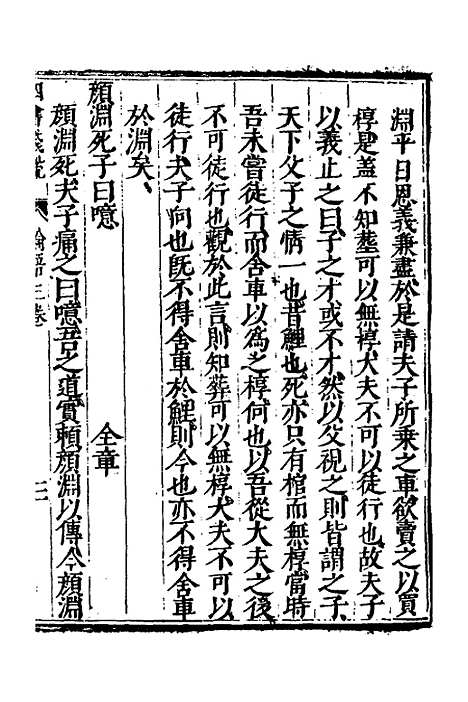 淵平日恩義兼盡於是請夫子所乗之車欲賣之以買
椁是盖不知塟可以無椁大夫不可以徒行也故夫子
以義止之曰子之才或不才然以父視之則皆謂之子
天下父子之情一也昔鯉也死亦只有棺而無椁當時
吾未嘗徒行而舍車以為之椁何也以吾從大夫之後
不可徒行也觀於此言則知葬可以無椁大夫不可以
徒行夫子向也既不得舍車於鯉則今也亦不得舍車
於淵矣
顔淵死子曰噫 全章
顔淵死夫子痛之曰噫吾之道實賴顔淵以傳今顔淵
四書 論語三卷